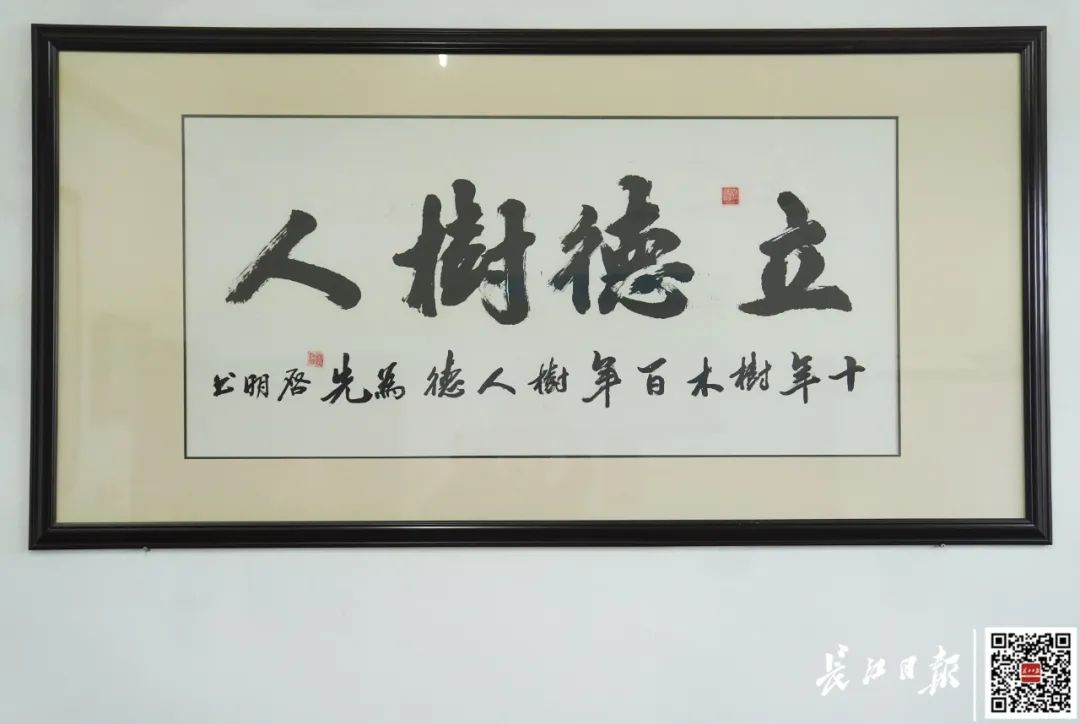 立德樹人
十年樹木百年樹人德為先啓明書
长江日报